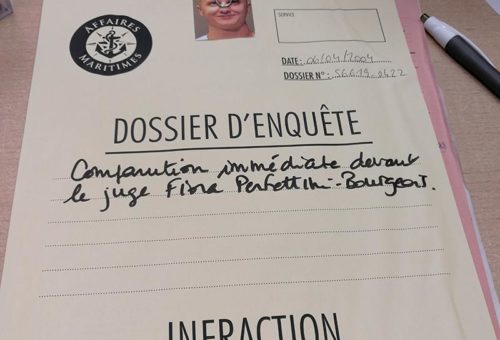 AFFAIRES MARITIMES
SERVICE
DATE: 06/04/2004
DOSSIER N°: S6.6.19_0422
DOSSIER D'ENQUÊTE
Comparution immédiate devant
le juge Fiona Perfettini-Bourgeois.
INFRACTION